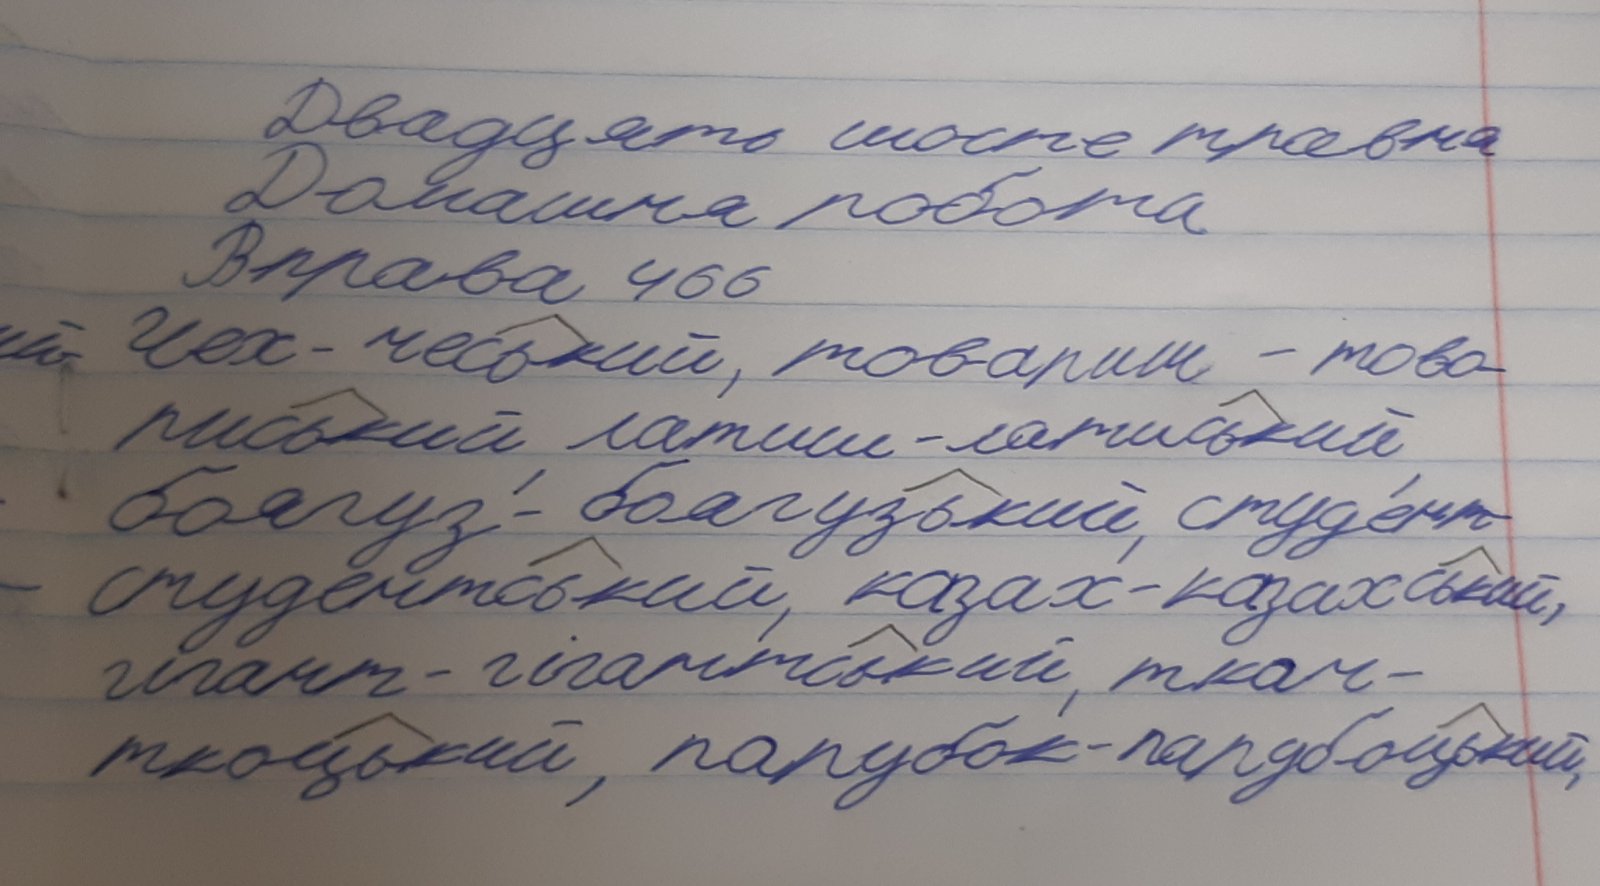 Двадцять шосте травня
Домашня робота
Вправа 466
Чех - чеський, товариш - това-
риський латиш - латиський
боягуз - боягузький, студент
- студентський, казах - казахський,
гігант - гігантський, ткач -
ткацький, парубок - парубоцький,